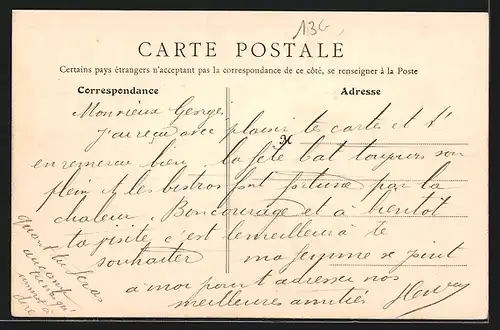 136
CARTE POSTALE
Certains pays étrangers n'acceptant pas la correspondance de ce côté, se renseigner à la Poste
Correspondance
Adresse
Mon vieux Georges
J'ai reçu avec plaisir tes cartes et t'
en remercie bien, la fête bat toujours son
plein et les bistros font fortune par la
chaleur. Bon courage et à bientôt
ta visite c'est le meilleur à te
souhaiter ma femme se joint
à moi pour t'adresser nos
meilleures amitiés
quand tu seras